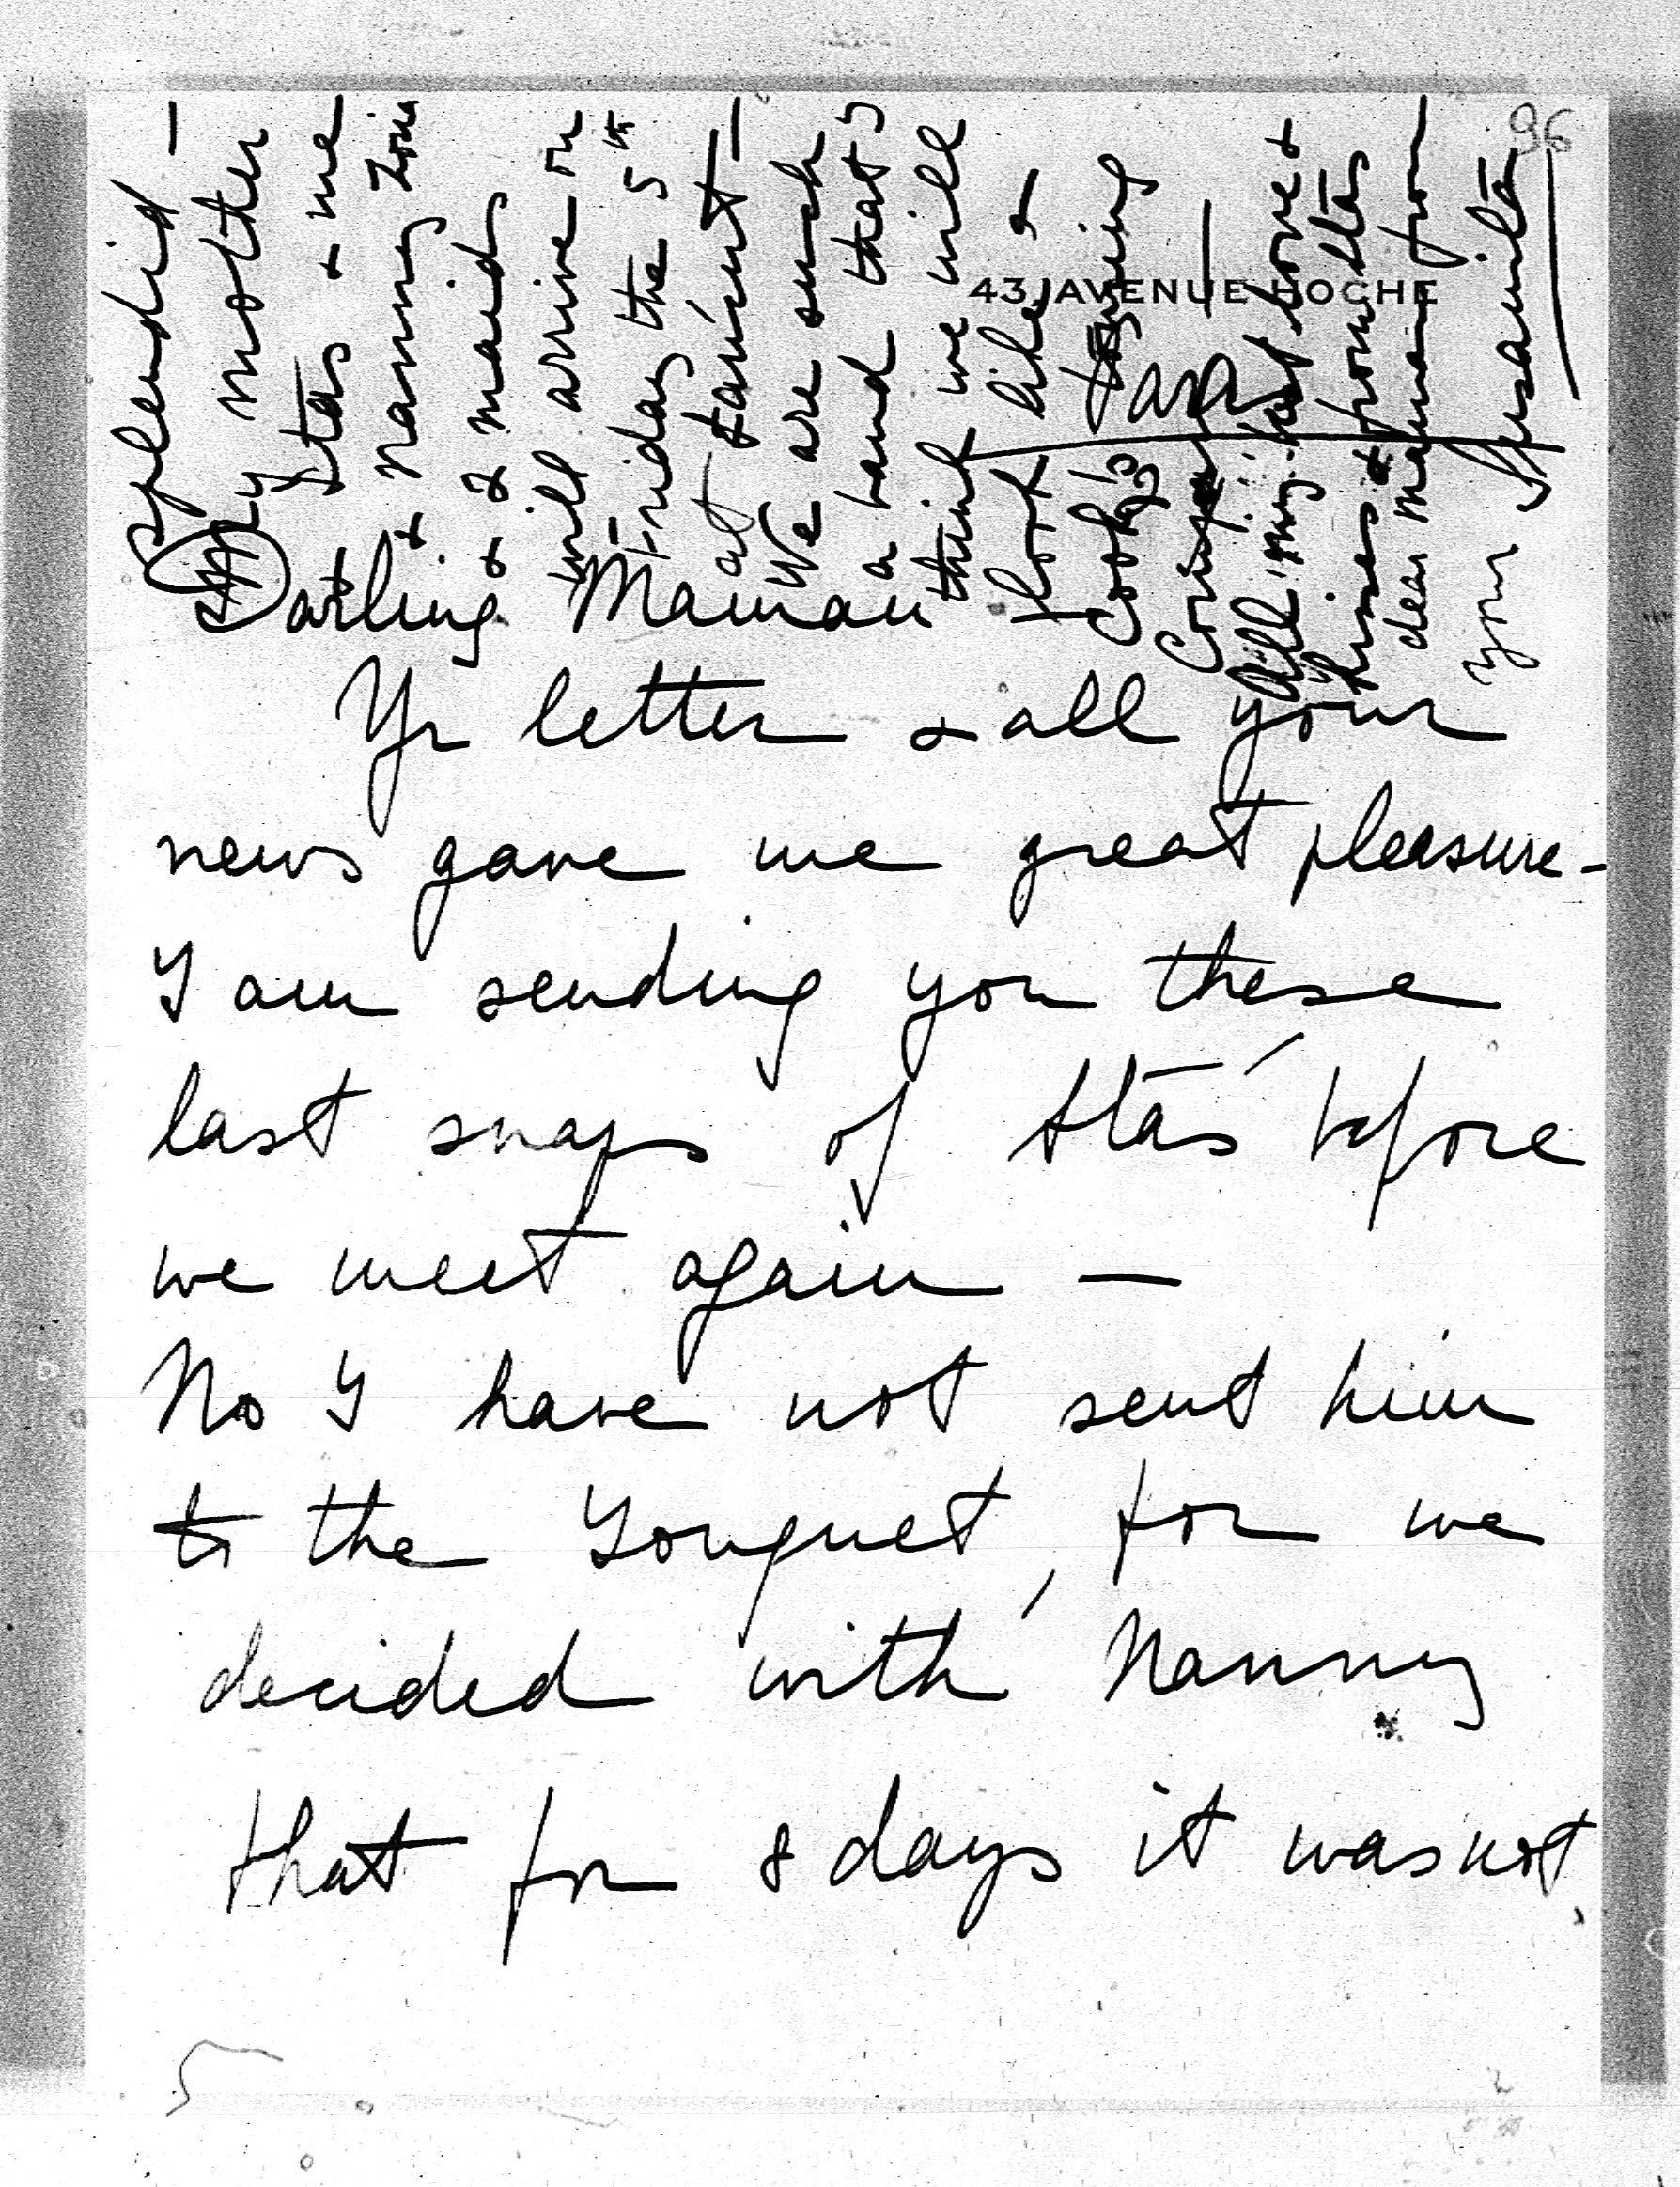 96
43, AVENUE HOCHE
Paris
Darling Maman
Yr letter & all your
news gave me great pleasure -
I am sending you these
last snaps of Stas before
we meet again —
No I have not sent him
to the Touquet, for we
decided with Nanny
that for 8 days it was not
splendid —
My mother
Stas & me
& Nanny
& 2 maids
will arrive on
Friday the 5th
at
We are such
a band that I
think we will
look like a
Cook's
All my best love &
kisses & from Stas
dear Maman from
your